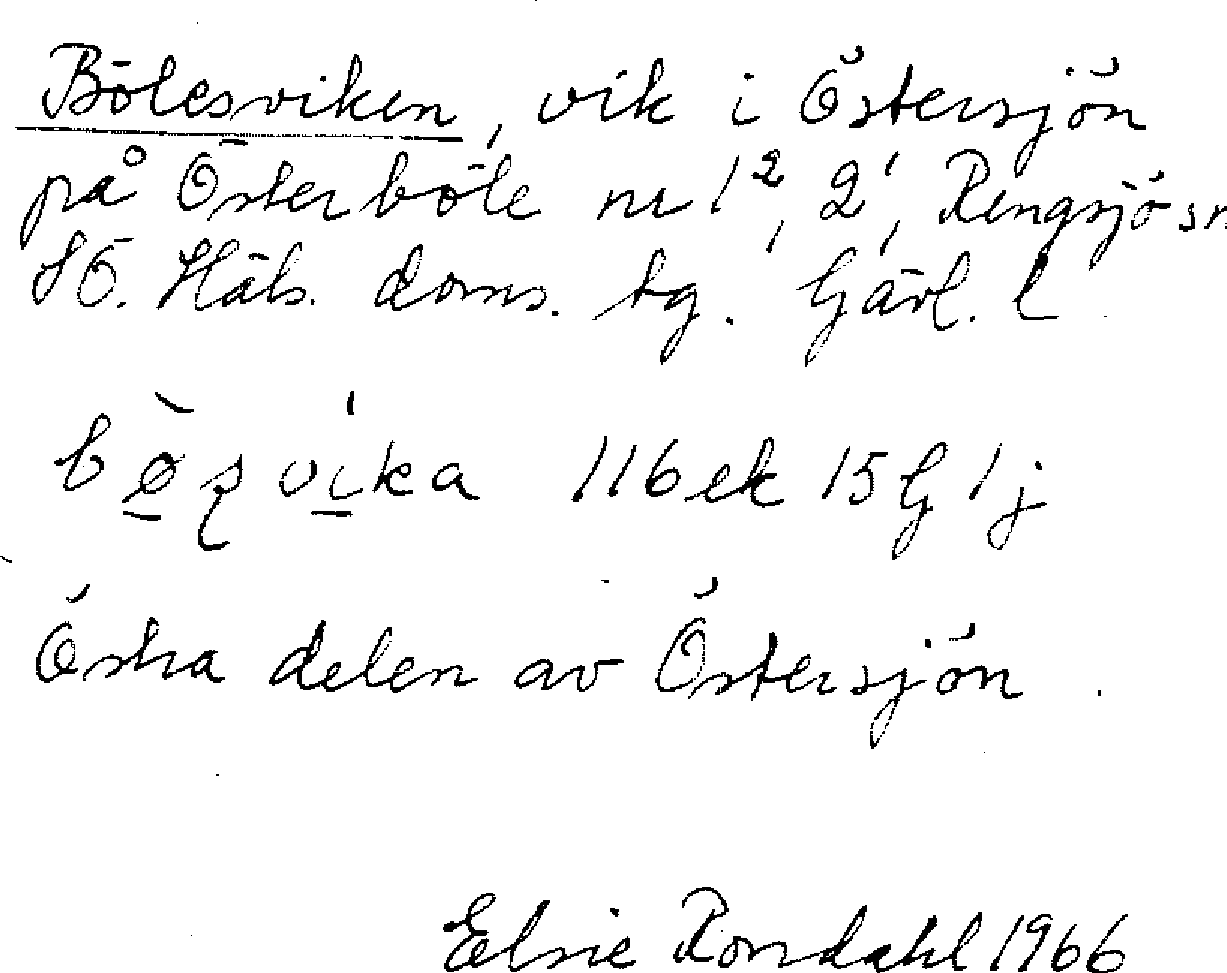 Bölesviken, vik i Östersjön
på Österböle nr 1², 2¹, Rengsjö sn
SÖ. Häls. doms. tg. Gävl. l
bø̱ʂvi̱ka 116 ek 15 G 1 j
Östra delen av Östersjön.
Elsie Rondahl 1966